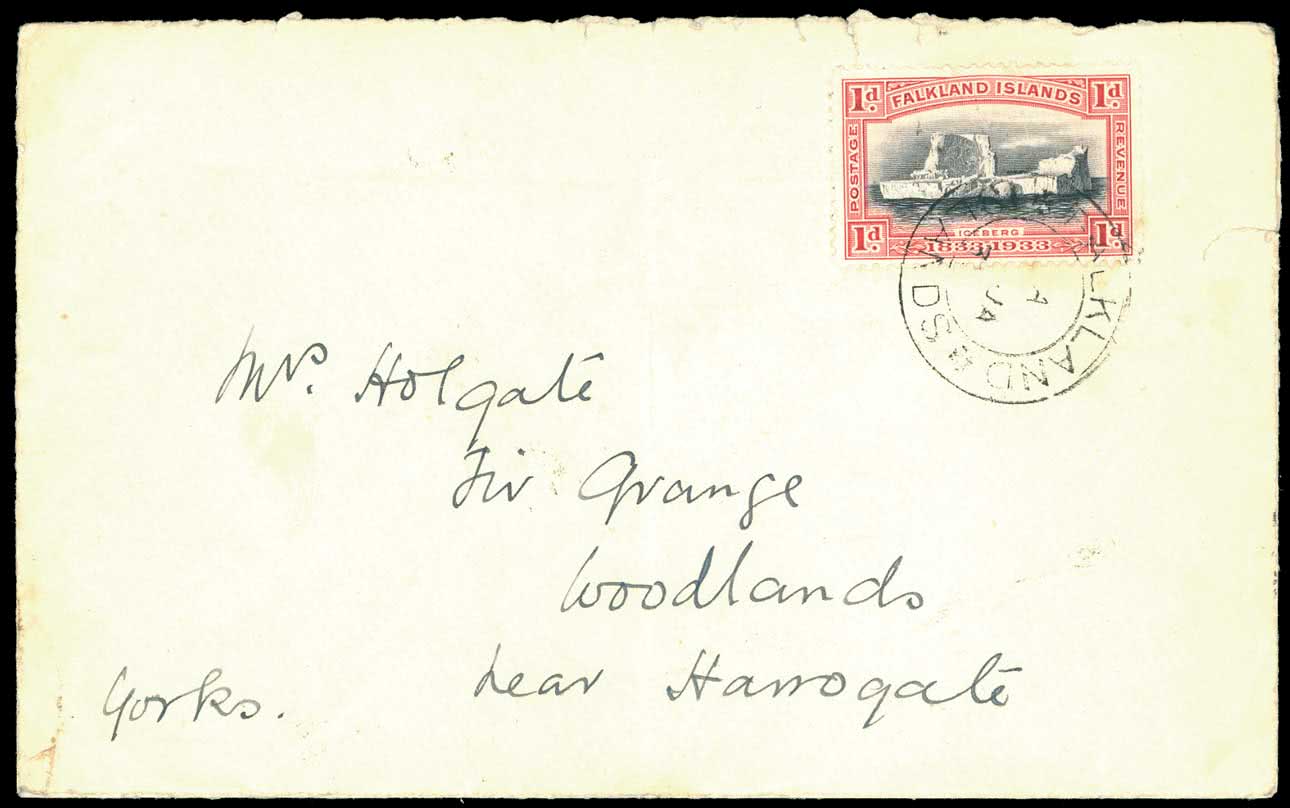 1d. FALKLAND ISLANDS 1d.
POSTAGE
REVENUE
ICEBERG
1d. 1833-1933 1d.
FALKLAND
JA
Mrs. Holgate
Fir Grange
Woodlands
near Harrogate
Yorks.